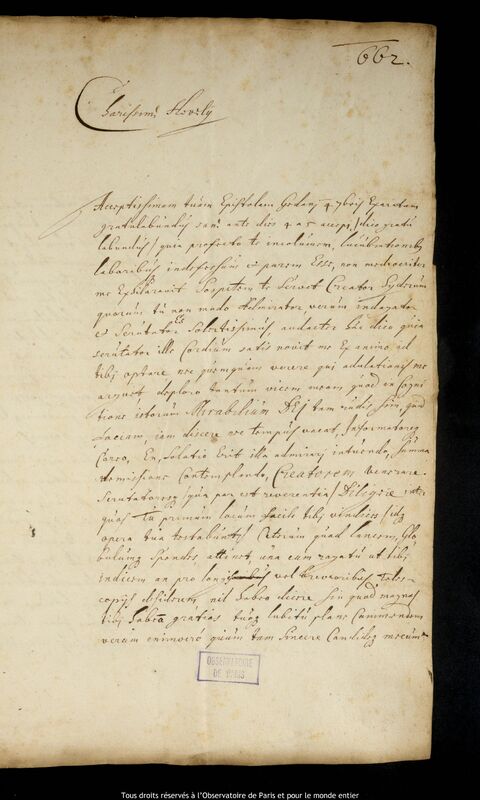 662.
Clarissime Hevely
Acceptissimam tuam Epistolam Gedani 4 7bris Exaratam
gratulabundus sane ante dies accepi, dico gratu
labundus quia profecto te incolumem, lucubrationibus
laboribus indefessum parem Esse, non mediocriter
me Exhilaravit Sospitem te servet Creator Syderum
quorum tu non modo Admirator, verum indagator
Scrutator Es Solertissimus audacter hoc dico quia
scrutator ille Cordium satis novit me Ex animo id
tibi optare nec quemquam vereor qui adulationis me
arguat deploro tantum vicem meam quod in Cogni
tione istorum Mirabilium DEI tam rudis sim, quid
faciam, iam discere nec tempus vacat, Informatoreq
Careo, En, solatio Erit illa admirari intuendo, summa
Admissione Contemplando, Creatorem Venerare.
Scrutatoresq qua par est reverentia Diligere inter
quos Tu primum locum facile tibi vindices, idq
opera tua testabuntur Ceterum quod lancem, Glo
bulumq Spondes attinet, una cum
indicem an pro longioribus vel brevioribus Teles-
copijs desiderem, nil habeo dicere sin quod magnas
tibi habeo gratias tuoq lubitui plane Committam
verum enimvero quum tam sincere Candideq mecum
OBSERVATOIRE
DE PARIS
Tous droits réservés à l'Observatoire de Paris et pour le monde entier